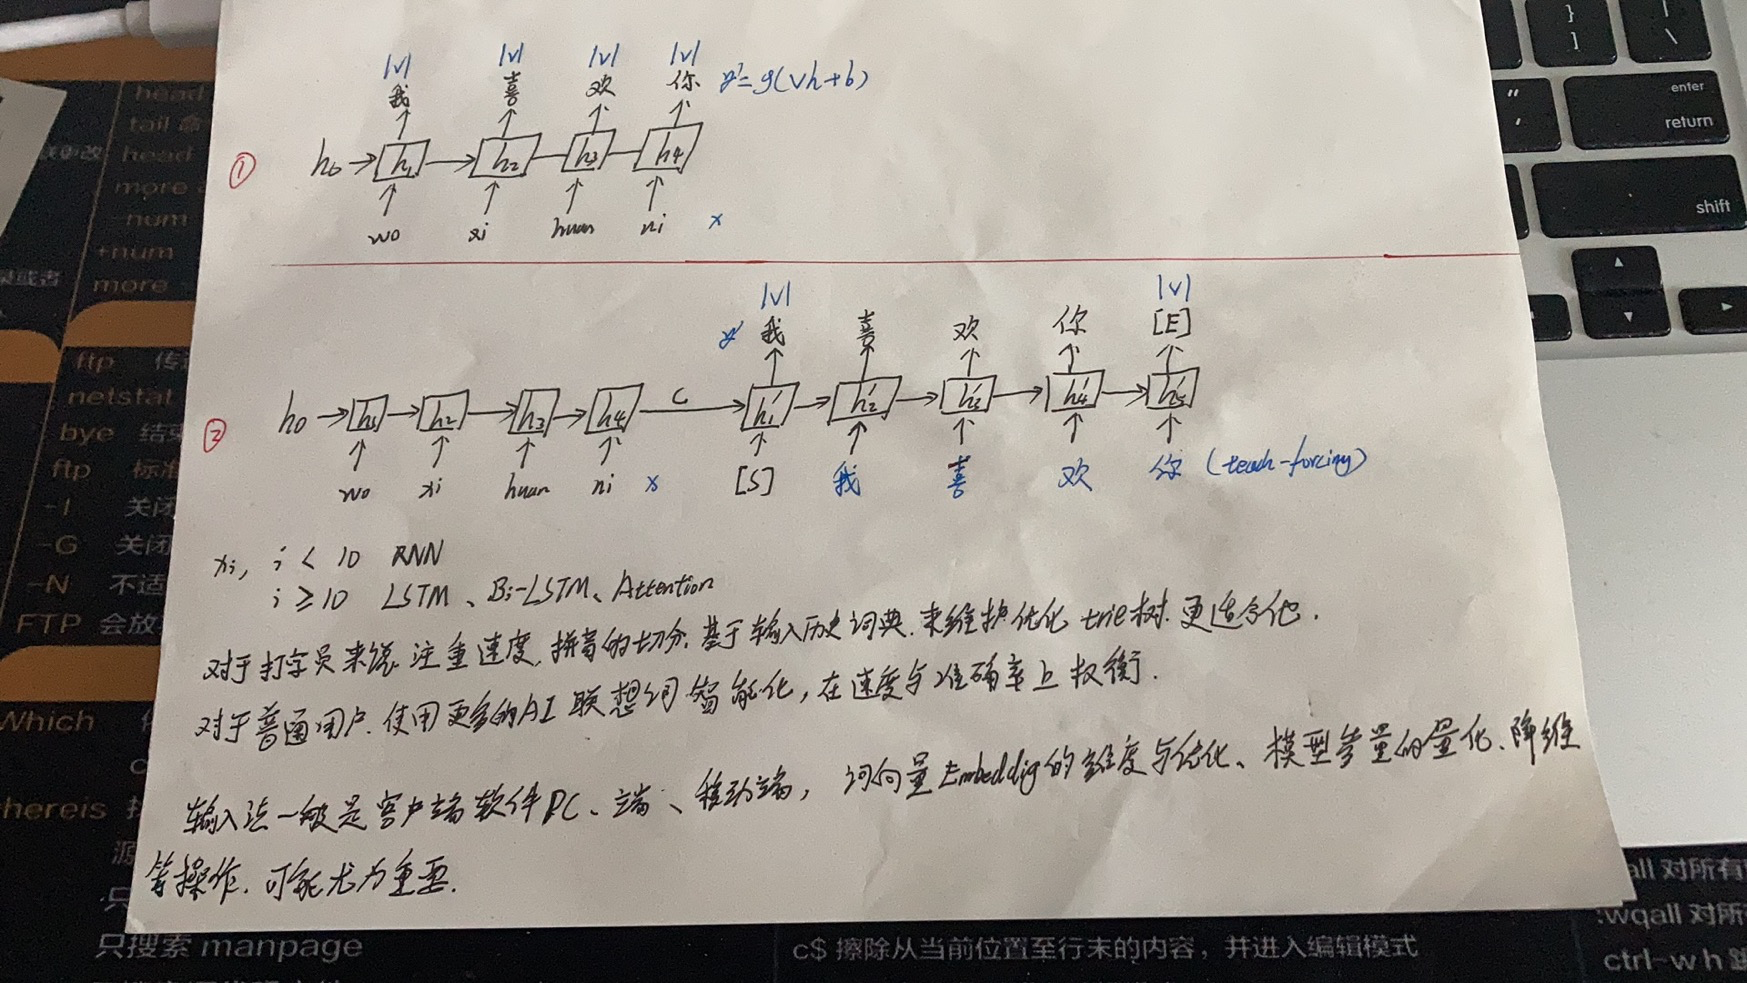 |v| |v| |v| |v|
我 喜 欢 你 y'=g(vh+b)
① h₀ h₁ h₂ h₃ h₄
wo xi huan ni x
|v| |v|
y' 我 喜 欢 你 [E]
② h₀ h₁ h₂ h₃ h₄ C h₁' h₂' h₃' h₄' h₅'
wo xi huan ni x [S] 我 喜 欢 你 (teach-forcing)
xi, i < 10 RNN
i ≥ 10 LSTM、Bi-LSTM、Attention
对于打字员来说, 注重速度, 拼音的切分, 基于输入历史词典, 来维护优化 trie树. 更适合他.
对于普通用户, 使用更多的AI 联想词智能化, 在速度与准确率上权衡.
输入法一般是客户端软件PC、端、移动端, 词向量Embeddig的维度与优化、模型参量的量化、降维
等操作. 可能尤为重要.
head
tail 命
head
more
-num
+num
或者
more
ftp 传
netstat
bye 结束
ftp 标准
-I 关闭
-G 关闭
-N 不适
FTP 会放
Which
hereis
源
只
只搜索 manpage
c$ 擦除从当前位置至行末的内容，并进入编辑模式
all 对所有
:wqall 对所
ctrl-w h
}
]
|
\
"
'
enter
return
shift